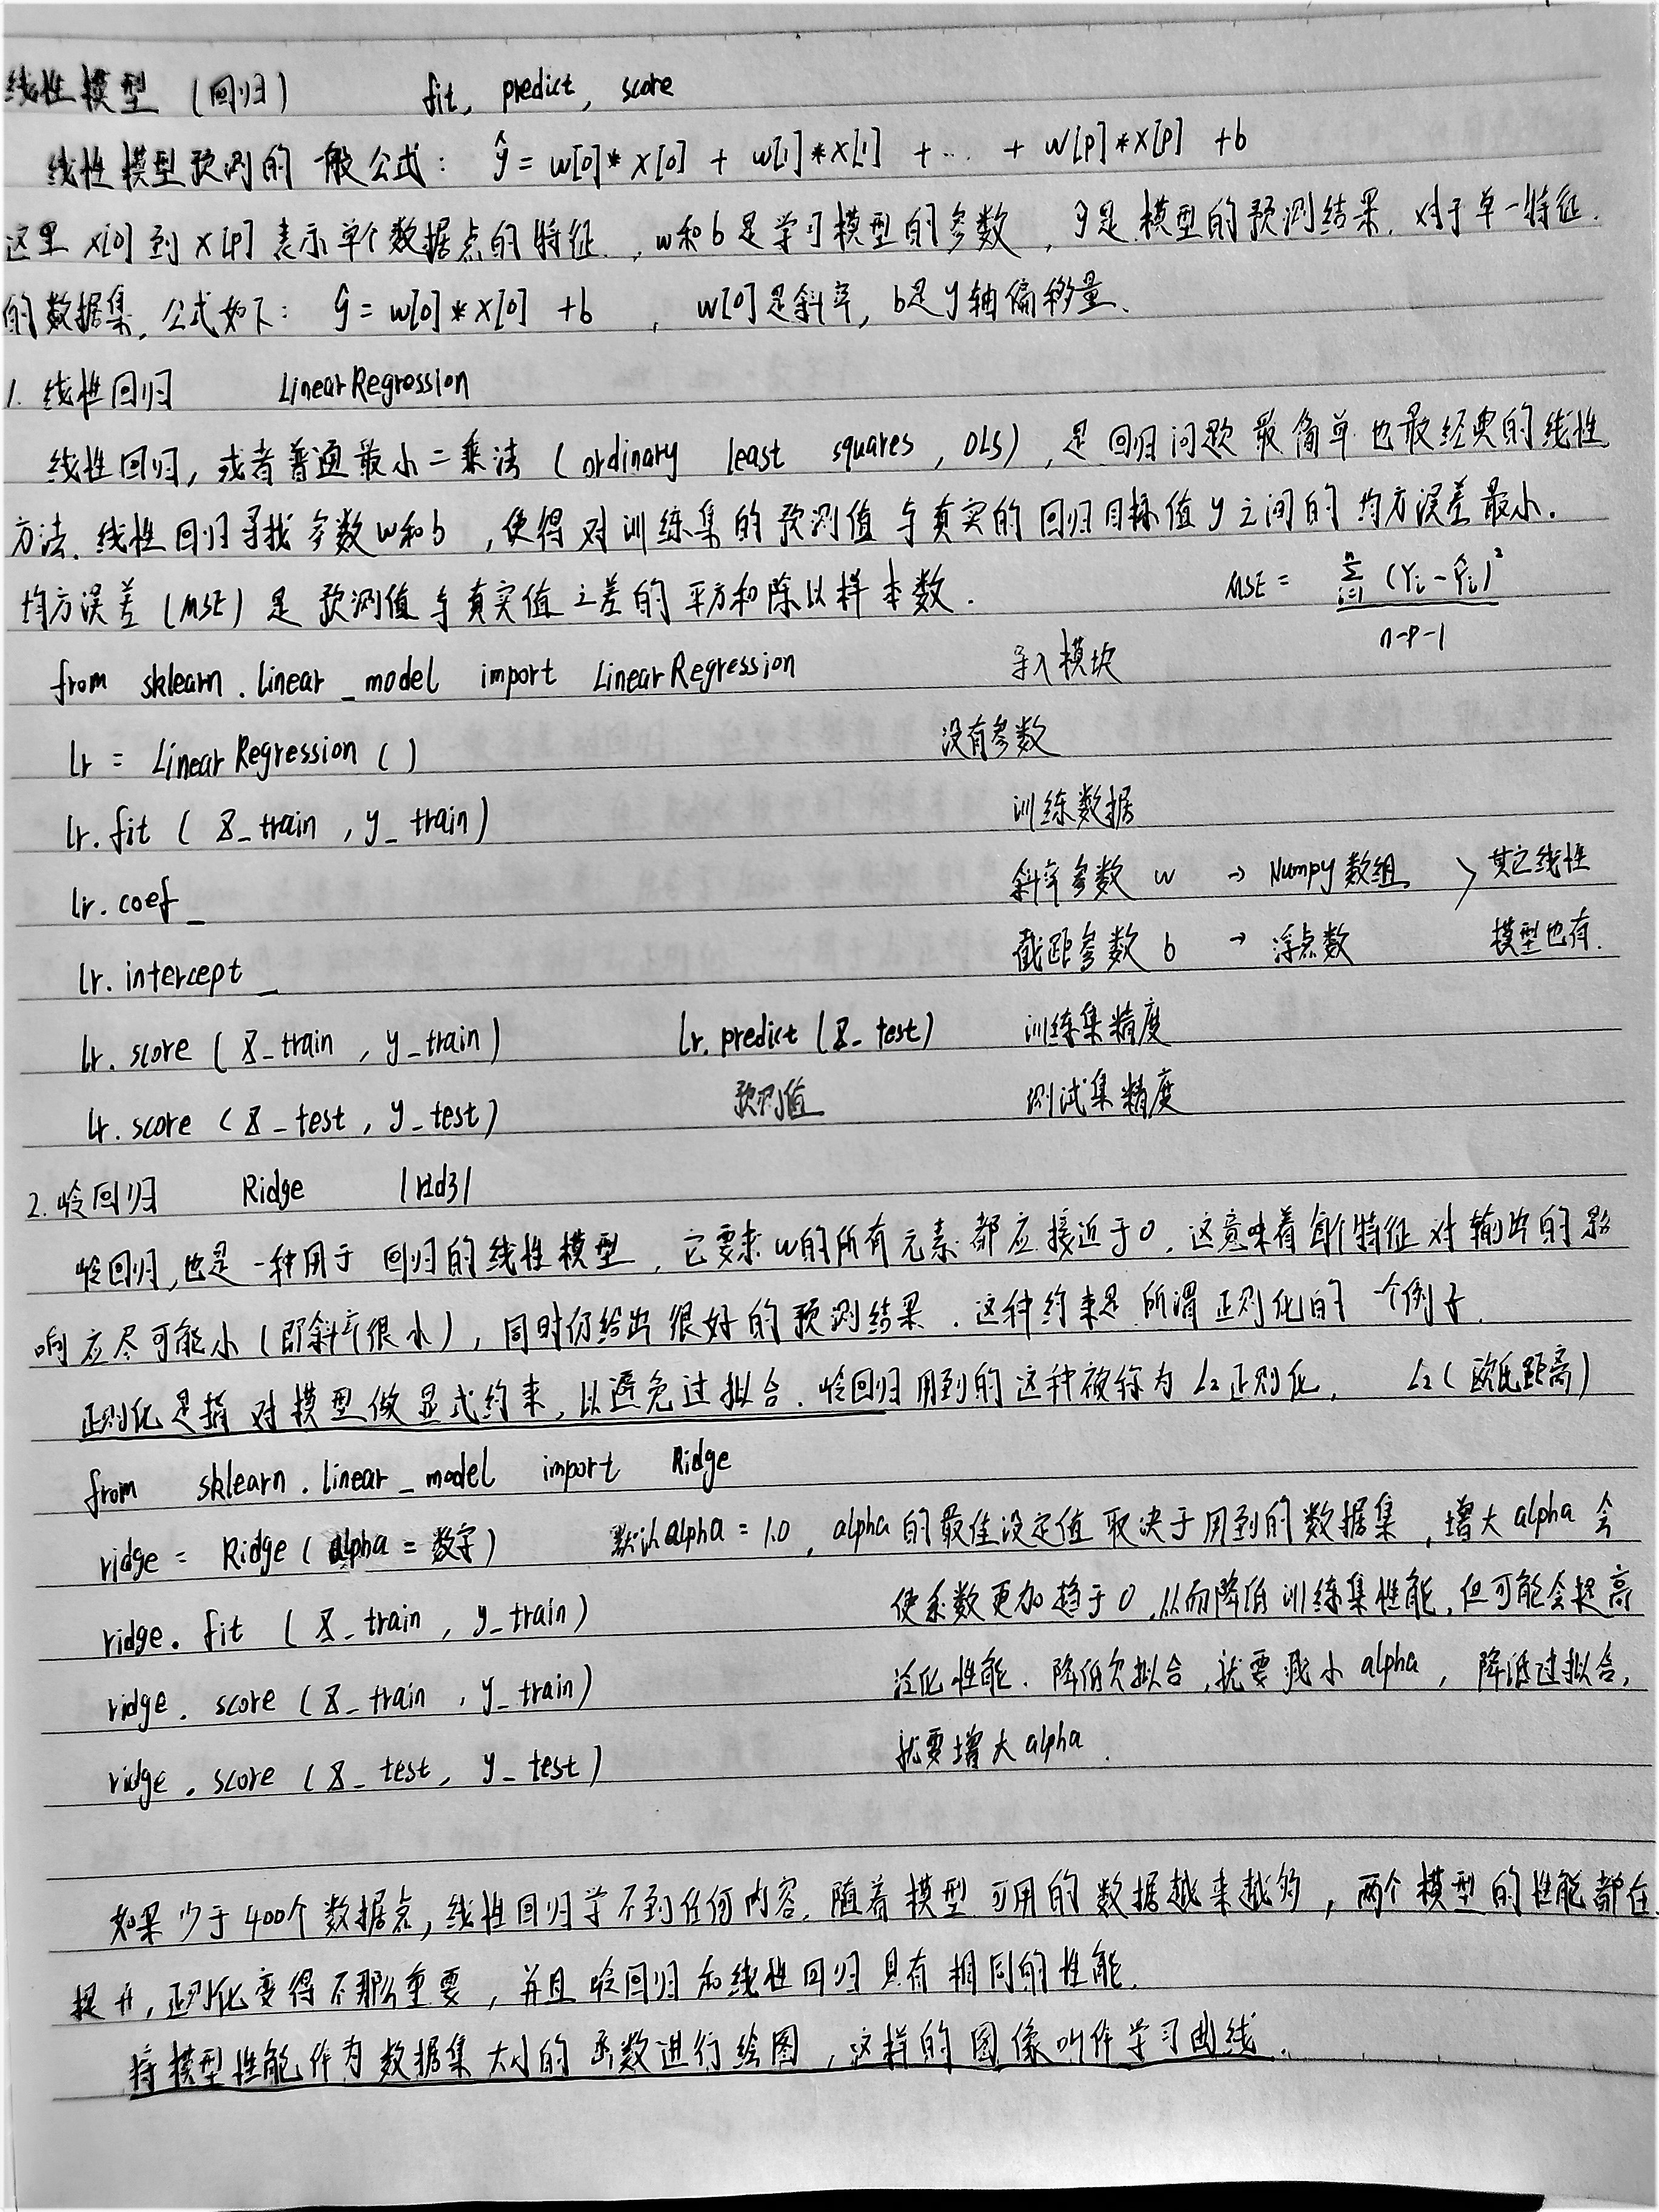 线性模型 (回归) fit, predict, score
线性模型预测的一般公式: ŷ = w[0]* x[0] + w[1]*x[1] + … + w[p]*x[p] +b
这里 x[0] 到 x[p] 表示单个数据点的特征, w和b是学习模型的参数, ŷ是模型的预测结果. 对于单一特征
的数据集, 公式如下: ŷ = w[0]*x[0] +b , w[0]是斜率, b是y轴偏移量.
1. 线性回归 LinearRegression
线性回归, 或者普通最小二乘法 (ordinary least squares, OLS), 是回归问题最简单也最经典的线性
方法. 线性回归寻找参数w和b, 使得对训练集的预测值与真实的回归目标值y之间的均方误差最小.
均方误差 (MSE) 是预测值与真实值之差的平方和除以样本数. MSE = \frac{\sum_{i=1}^{n} (Y_i - Ŷ_i)^2}{n-p-1}
from sklearn.linear_model import LinearRegression 导入模块
lr = LinearRegression () 没有参数
lr.fit (X_train, y_train) 训练数据
lr.coef_ 斜率参数 w → Numpy数组 > 其它线性
lr.intercept_ 截距参数 b → 浮点数 模型也有.
lr.score (X_train, y_train) lr.predict (X_test) 训练集精度
lr.score (X_test, y_test) 预测值 测试集精度
2. 岭回归 Ridge |rɪdʒ|
岭回归, 也是一种用于回归的线性模型, 它要求w的所有元素都应接近于0. 这意味着每个特征对输出的影
响应尽可能小 (即斜率很小), 同时仍给出很好的预测结果. 这种约束是所谓正则化的一个例子.
正则化是指对模型做显式约束, 以避免过拟合. 岭回归用到的这种被称为L2正则化. L2 (欧氏距离)
from sklearn.linear_model import Ridge
ridge = Ridge (alpha = 数字) 默认alpha = 1.0, alpha的最佳设定值取决于用到的数据集, 增大alpha会
ridge.fit (X_train, y_train) 使系数更加趋于0, 从而降低训练集性能, 但可能会提高
ridge.score (X_train, y_train) 泛化性能. 降低欠拟合, 就要减小alpha, 降低过拟合,
ridge.score (X_test, y_test) 就要增大alpha.
如果少于400个数据点, 线性回归学不到任何内容. 随着模型可用的数据越来越多, 两个模型的性能都在
提升, 正则化变得不那么重要, 并且岭回归和线性回归具有相同的性能.
将模型性能作为数据集大小的函数进行绘图, 这样的图像叫作学习曲线.